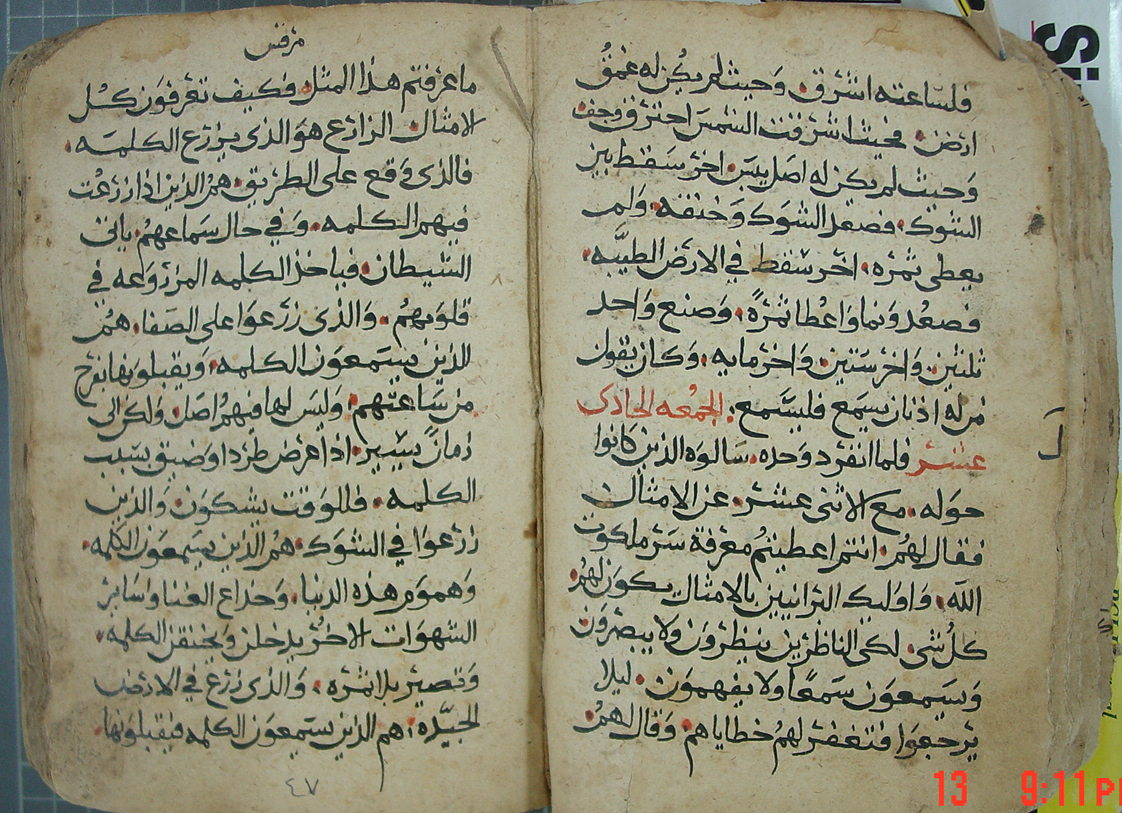 فلساعته اشرق. وحيث لم يكن له عمق
ارض. فحيث اشرقت الشمس احترق وجف.
وحيث لم يكن له اصل يبس. اخر سقط بين
الشوك. فصعد الشوك وخنقه. ولم
يعطى ثمره. اخر سقط في الارض الطيبه.
فصعد ونما واعطا ثمرةً. وصنع واحد
ثلثين. واخر ستين. واخر مايه. وكان يقول
من له اذنان يسمع فليسمع. الجمعه الحادى
عشر فلما انفرد وحده. سالوه الذين كانوا
حوله. مع الاثنى عشر. عن الامثال
فقال لهم. انتم اعطيتم معرفة سر ملكوت
الله. واوليك البرانيين بالامثال يكون لهم
كل شى. لكى الناظرين ينظرون ولا يبصرون
وسيمعون سمعًا ولا يفهمون. ليلا
يرجعوا فتغفر لهم خطاياهم. وقال لهم.
مرقس
ما عرفتم هذا المثل. فكيف تعرفون كل
الامثال الزارع هو الذى يزرع الكلمه.
فالذى وقع على الطريق. هم الذين اذا زرعت
فيهم الكلمه. وفي حال سماعهم. ياتى
الشيطان. فياخذ الكلمه المزروعه في
قلوبهم. والذى زرعوا على الصفا. هم
الذين يستمعون الكلمه. ويقبلونها بفرح
من ساعتهم. وليس لها فيهم اصل. ولكن الى
زمانً يسير. اذا عرض طرد او ضيق بسبب
الكلمه. فللوقت يشكون. والذين
زرعوا في الشوك. هم الذين يسمعون الكلمه.
وهموم هذه الدنيا. وخداع الغنا وساير
الشهوات الاخر يدخلن ويخنقن الكلمه.
وتصير بلا ثمره. والذى زرع في الارض
الجيده. هم الذين يستمعون الكلمه فيقبلونها.
٤٧
13 9:11